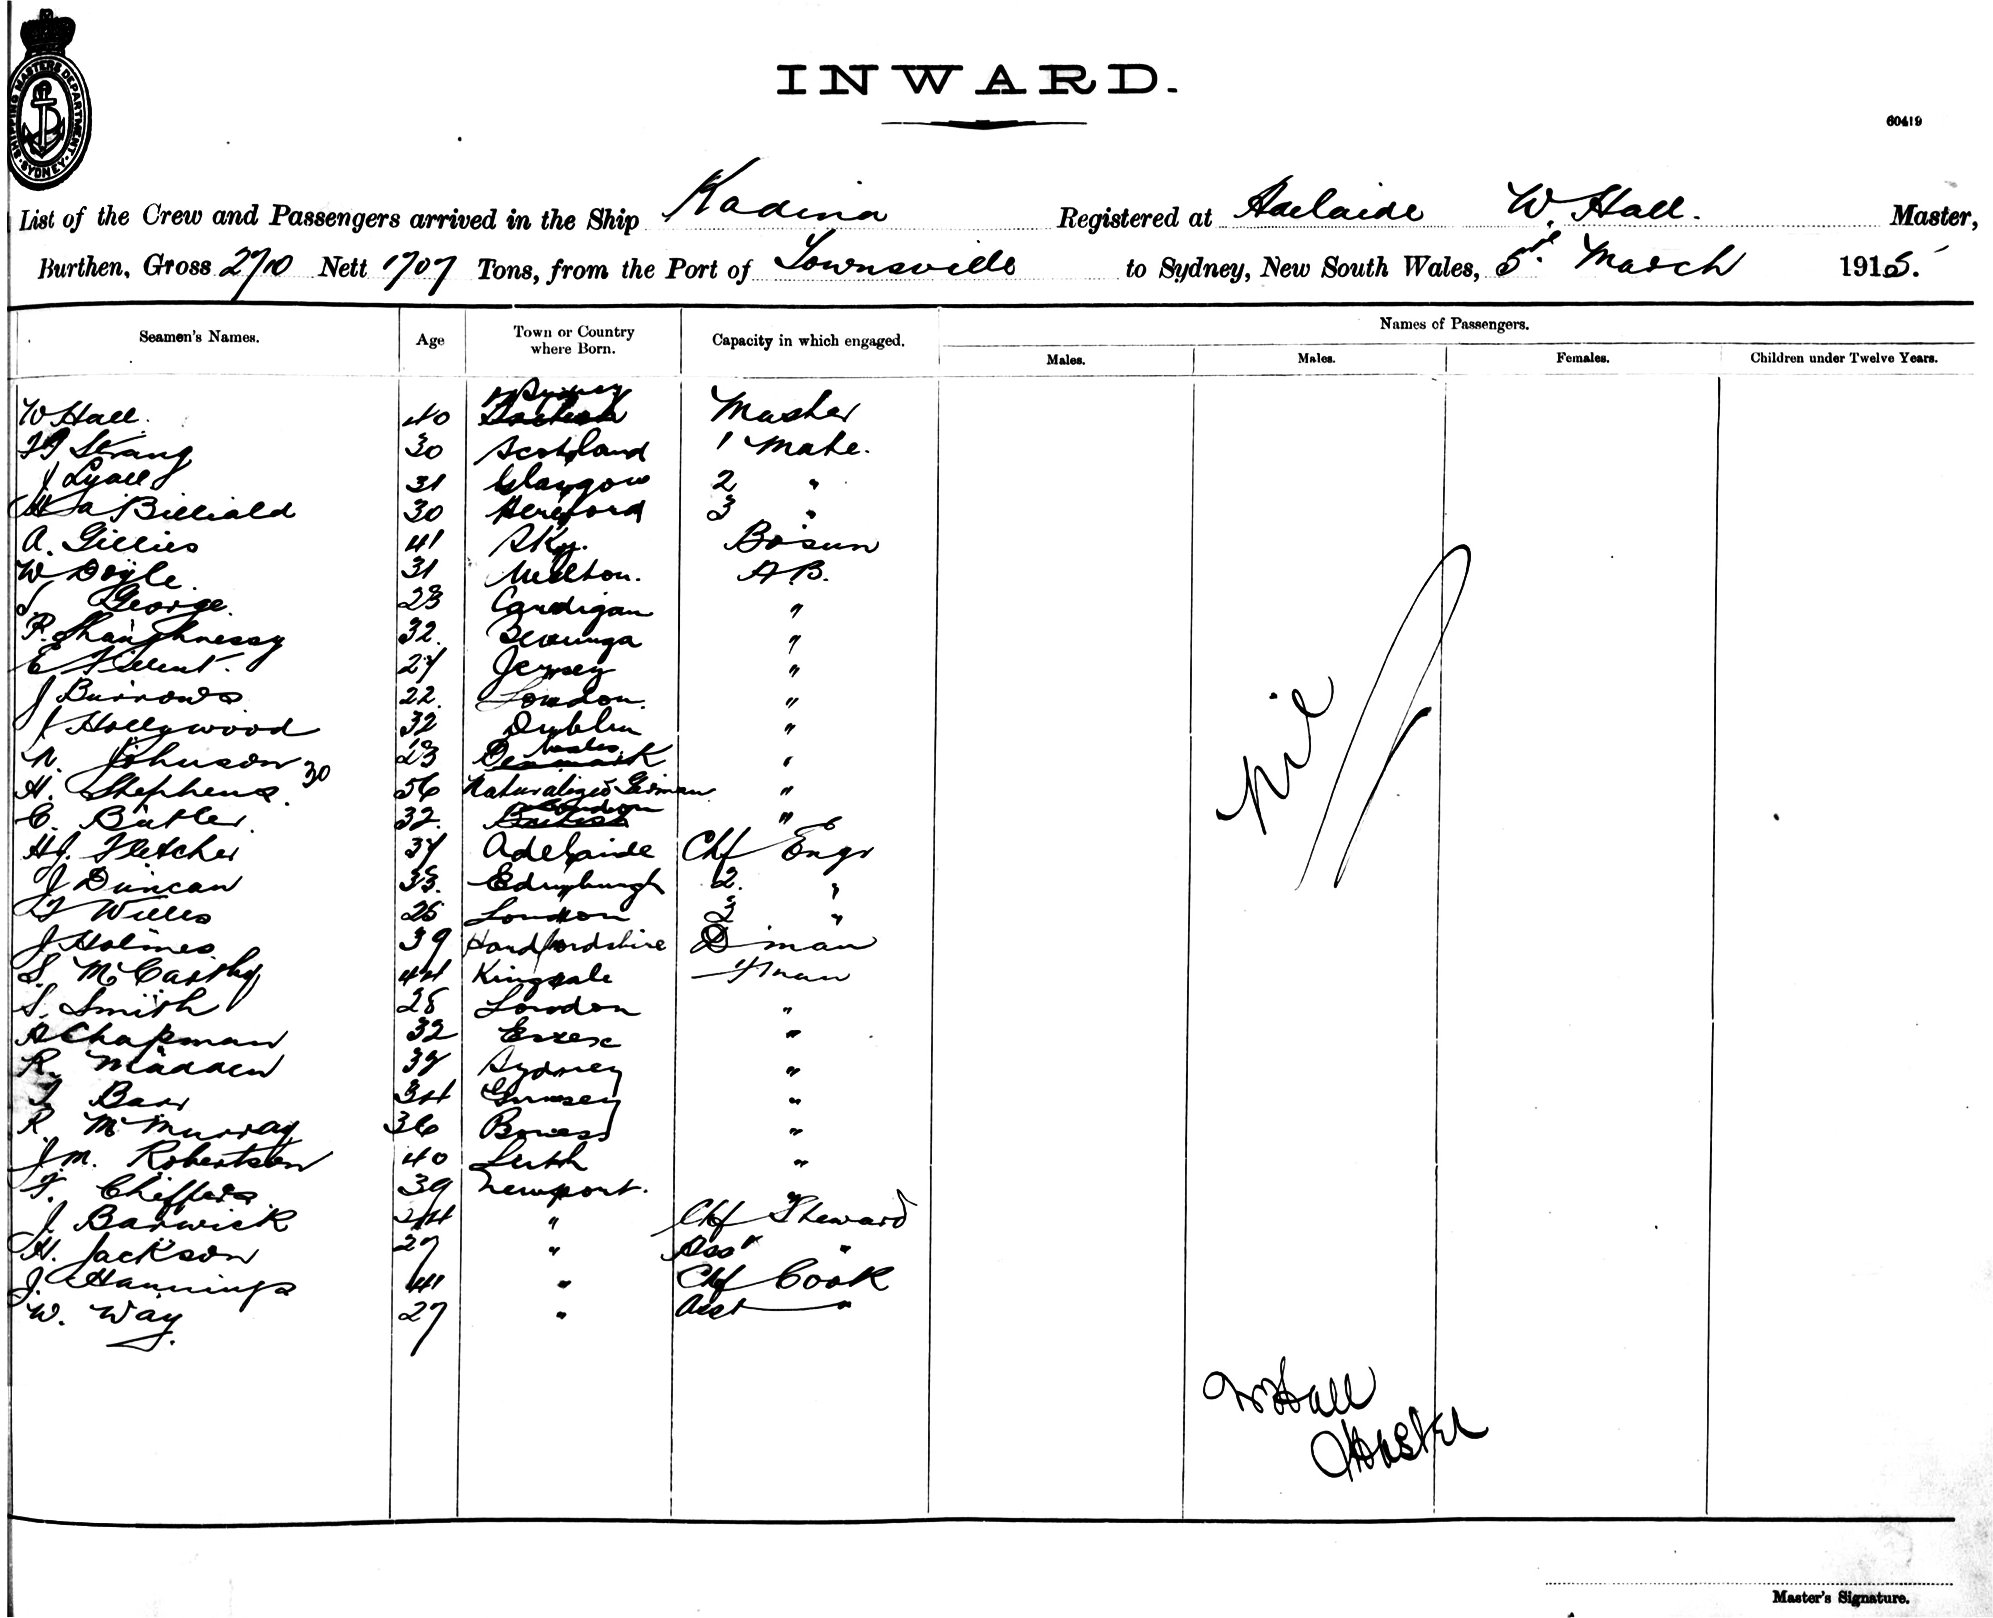 SHIPPING MASTERS DEPARTMENT · SYDNEY ·
INWARD.
60419
List of the Crew and Passengers arrived in the Ship Kadina Registered at Adelaide W. Hall. Master,
Burthen, Gross 2710 Nett 1707 Tons, from the Port of Townsville to Sydney, New South Wales, 5th March 1915.
Names of Passengers.
Seamen's Names. Age Town or Country where Born. Capacity in which engaged. Males. Males. Females. Children under Twelve Years.
W Hall. 40 Sydney Master
Strang 30 Scotland 1 Mate.
J Lyall 31 Glasgow 2 "
Billiald 30 Hereford 3 "
A. Gillies 41 Sky. Bosun
W Doyle. 31 Melton. A.B.
George. 23 Cardigan "
P. Shaughnessy 32. "
E 27 Jersey "
J Burrows 22. London. "
J Hollywood 32 Dublin "
N. Johnson 23 Denmark "
H. Stephens. 30 56 Naturalized German "
C. Butler. 32. London British "
HJ. Fletcher 37 Adelaide Chf Engr
J Duncan 33. Edinburgh 2. "
Willis London 3 "
J. Holmes 39 D man
S. McCarthy 44 Kingsale Fman
S. Smith 28 London "
A Chapman 32 Essex "
R. Madden Sydney "
Barr 34 "
R. McMurray 36 "
J.M. Robertson 40 Leith "
F. Chiffers. 39 Newport. "
J. Barwick " Chf Steward
H. Jackson 27 " Asst "
J. Hannings 41 " Chf Cook
W. Way 27 " Asst "
Nil
W Hall
Master
Master's Signature.